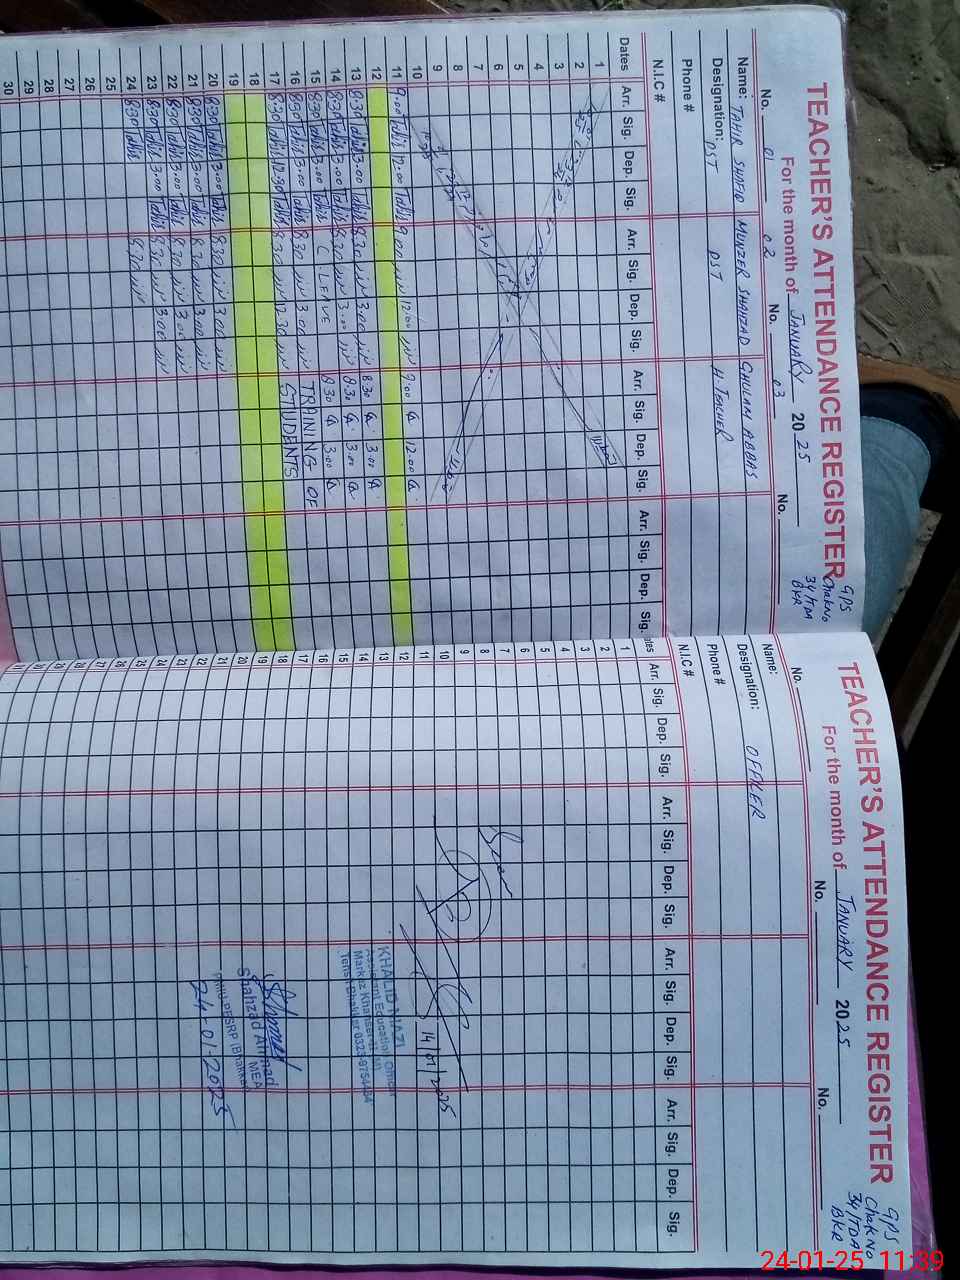 TEACHER'S ATTENDANCE REGISTER
GPS
Chak No
34/TDA
BKR
For the month of JANUARY 2025
No. 01 02 No. 03 No.
Name: TAHIR SHAFIQ MUNZER SHAHZAD GHULAM ABBAS
Designation: PST PST H. TEACHER
Phone #
N.I.C #
Dates Arr. Sig. Dep. Sig. Arr. Sig. Dep. Sig. Arr. Sig. Dep. Sig. Arr. Sig. Dep. Sig.
1
2
3
4
5
6
7
8
9
10 9:00 Tahir 12:00 Tahir 9:00 12:00 9:00 G 12:00 G.
11
12
13 8:30 Tahir 3:00 Tahir 8:30 3:00 8:30 G. 3:00 G.
14 8:30 Tahir 3:00 Tahir 8:30 3:00 8:30 G. 3:00 G
15 8:30 Tahir 3:00 Tahir C. LEAVE 8:30 G 3:00 G
16 8:30 Tahir 3:00 Tahir 8:30 3:00 TRAINING OF
17 8:30 Tahir 12:30 Tahir 8:30 12:30 STUDENTS
18
19
20 8:30 Tahir 3:00 Tahir 8:30 3:00
21 8:30 Tahir 3:00 Tahir 8:30 3:00
22 8:30 Tahir 3:00 Tahir 8:30 3:00
23 8:30 Tahir 3:00 Tahir 8:30 3:00
24 8:30 Tahir 8:30
25
26
27
28
29
30
TEACHER'S ATTENDANCE REGISTER
GPS
Chak No
34/TDA
BKR
For the month of JANUARY 2025
No. No. No.
Name:
Designation: OFFICER
Phone #
N.I.C #
Dates Arr. Sig. Dep. Sig. Arr. Sig. Dep. Sig. Arr. Sig. Dep. Sig. Arr. Sig. Dep. Sig.
1
2
3
4
5
6
7
8
9
10
11
12
13
14
15
16
17
18
19
20
21
22
23
24
25
26
27
28
29
30
31
Seen
14/01/2025
KHALID NIAZI
Assistant Education Officer
Markaz Khansar
Tehsil Bhakkar 0323-8754484
Shahzad Ahmad
MEA
PMIU-PESRP (Bhakkar)
24-01-2025
24-01-25 11:39